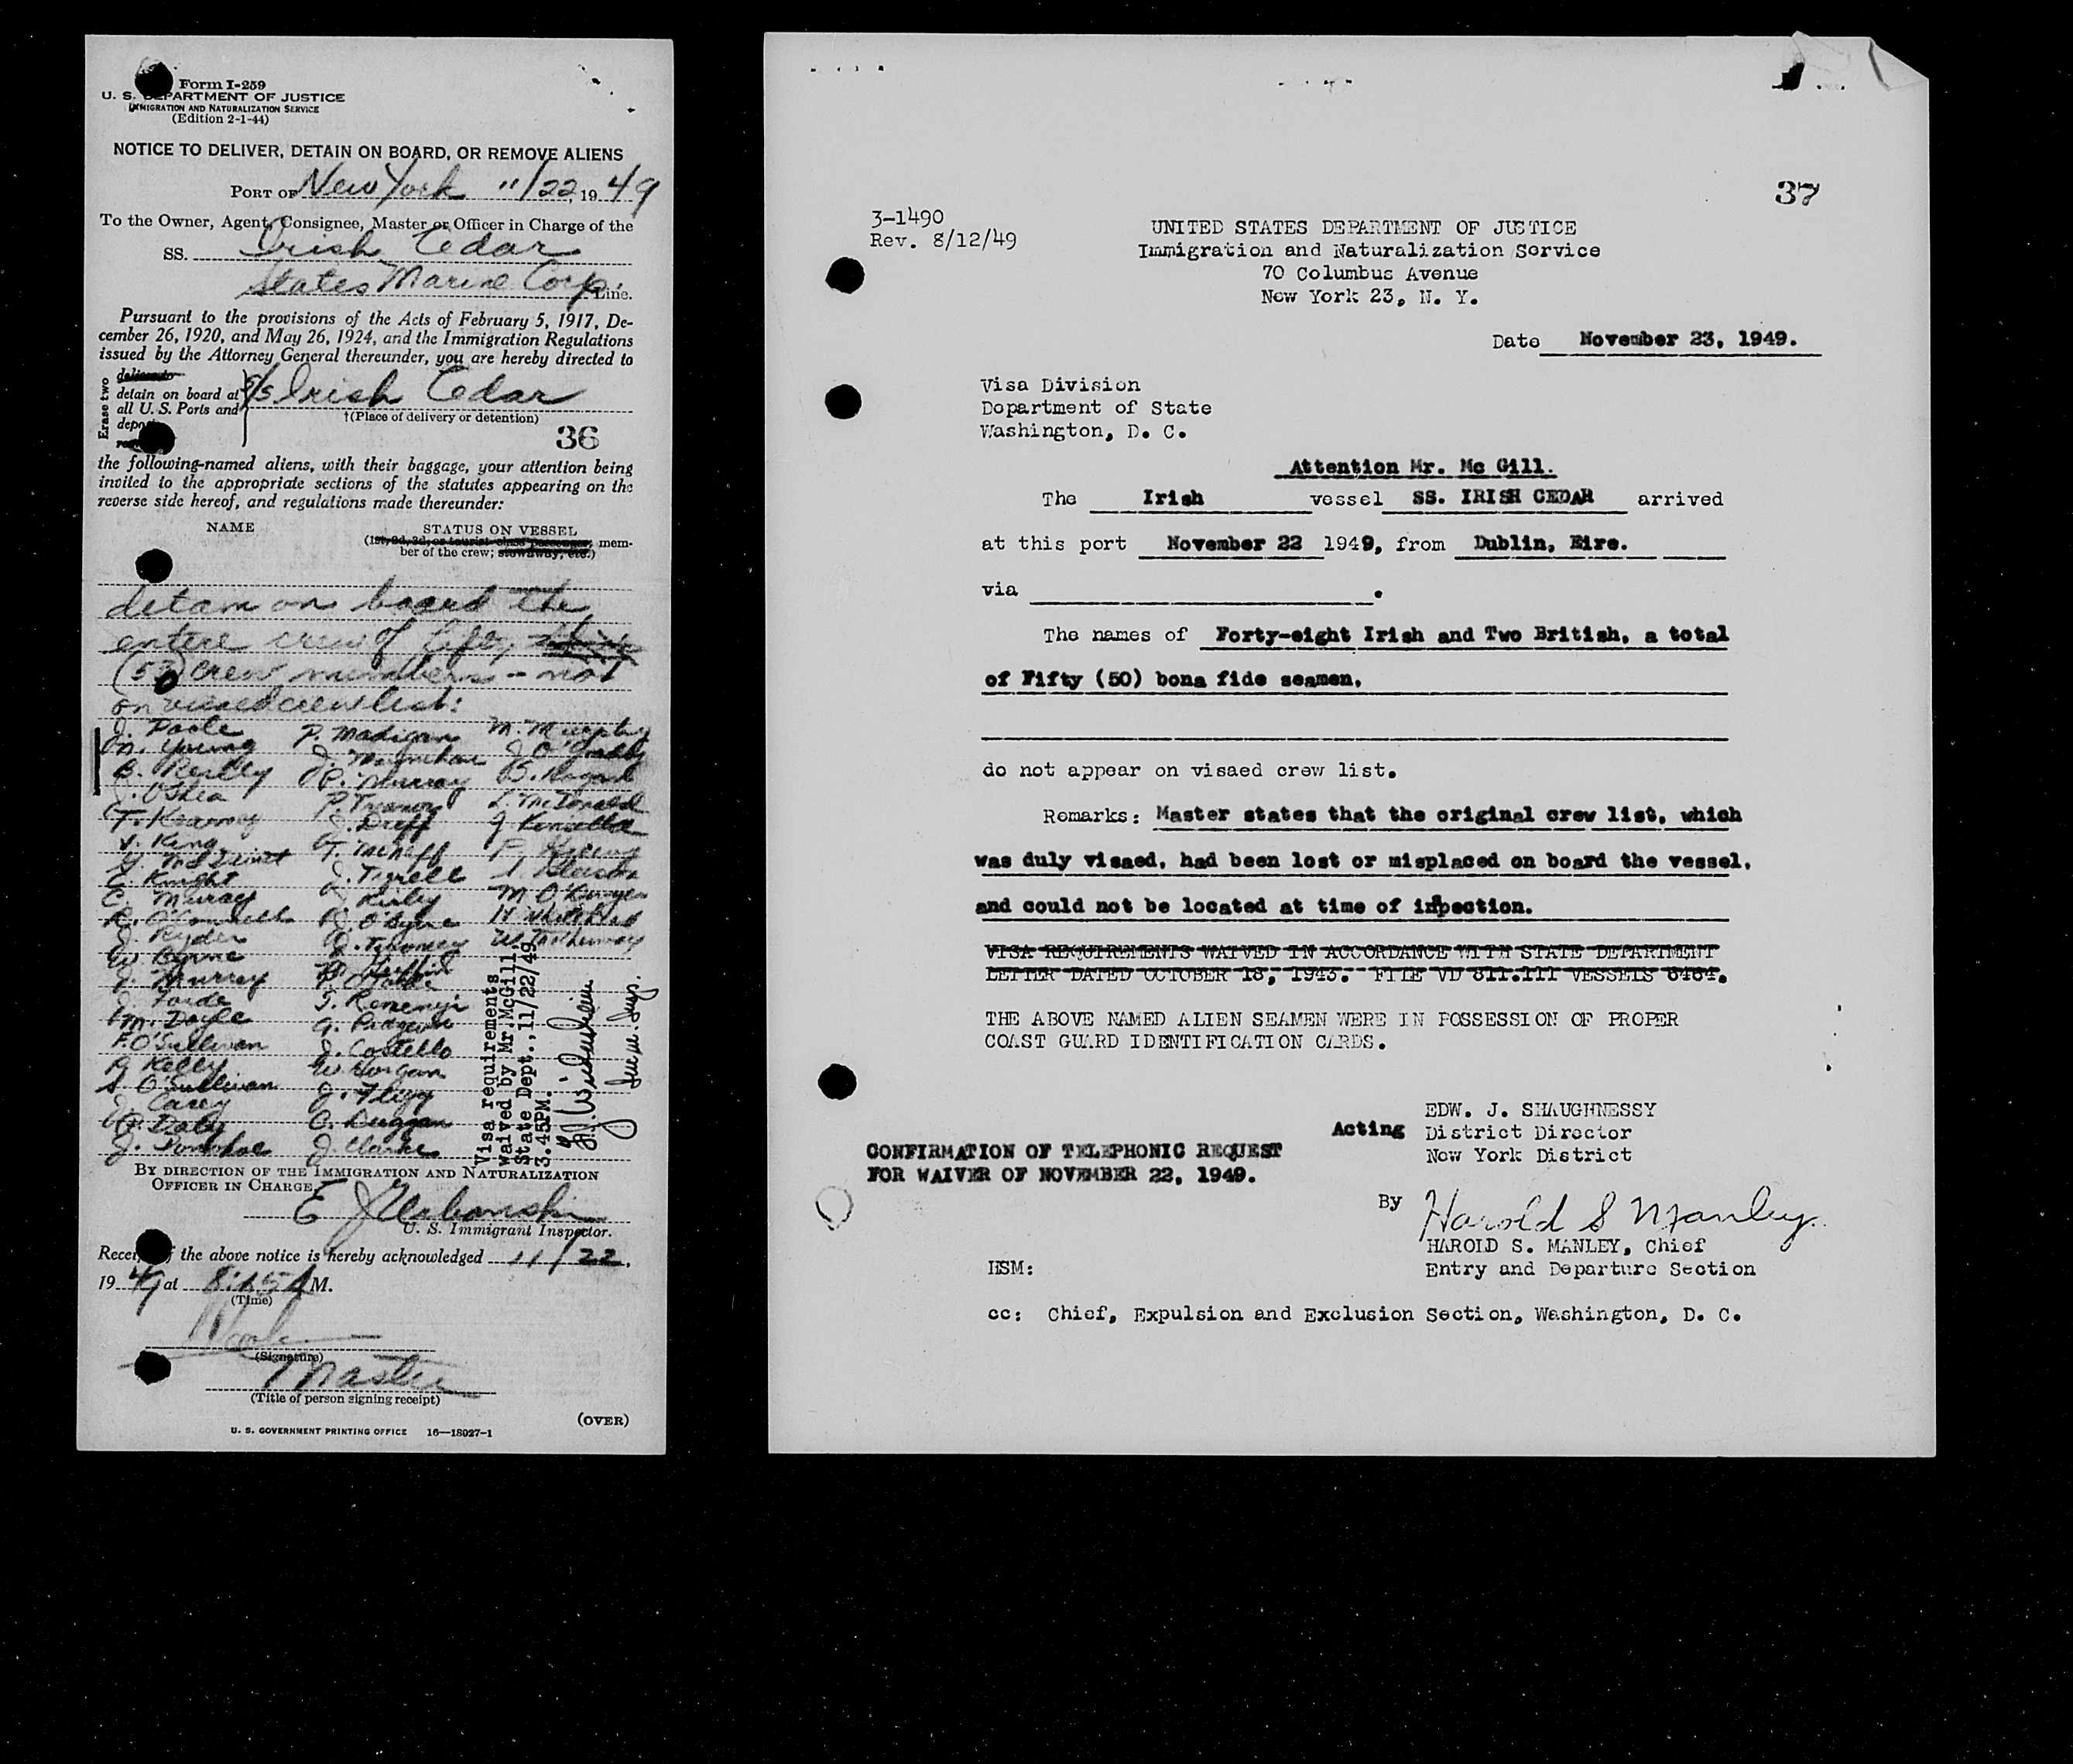 Form I-259
U. S. DEPARTMENT OF JUSTICE
IMMIGRATION AND NATURALIZATION SERVICE
(Edition 2-1-44)
NOTICE TO DELIVER, DETAIN ON BOARD, OR REMOVE ALIENS
PORT OF New York 11/22, 1949
To the Owner, Agent, Consignee, Master or Officer in Charge of the
SS. Irish Cedar
States Marine Corp. Line.
Pursuant to the provisions of the Acts of February 5, 1917, De-
cember 26, 1920, and May 26, 1924, and the Immigration Regulations
issued by the Attorney General thereunder, you are hereby directed to
Erase two
detain on board at
all U. S. Ports and
S/S Irish Cedar
†(Place of delivery or detention)
36
the following-named aliens, with their baggage, your attention being
invited to the appropriate sections of the statutes appearing on the
reverse side hereof, and regulations made thereunder:
NAME
STATUS ON VESSEL
(1st, 2d, 3d, or tourist class passenger; mem-
ber of the crew; stowaway, etc.)
detain on board the
entire crew of fifty
(50) crew members - not
on visaed crew list:
J. Poole P. Madigan M. Murphy
M. Young J. O'Grady
B. Reilly P. Murray B. Hogan
J. O'Shea P. Treanor L. McDonald
T. Kearney J. Duff J. Kinsella
J. King T. McNiff
C. Knight J. Tyrell
C. Murray J. Kirley
R. O'Connell P. O'Byrne H. Whitehead
J. Ryder J. Twomey
W. Byrne
J. Murray
J. Forde
M. Doyle
F. O'Sullivan J. Costello
P. Kelly W. Horgan
S. O'Sullivan J. Flegg
J. Carey C. Duggan
P. Daly J. Clarke
J. Donohoe
Visa requirements
waived by Mr. McGill,
State Dept., 11/22/49
3.45PM.
BY DIRECTION OF THE IMMIGRATION AND NATURALIZATION
OFFICER IN CHARGE
E J Urbanski
U. S. Immigrant Inspector.
Receipt of the above notice is hereby acknowledged 11/22,
1949 at 8:15 A M.
(Time)
(Signature)
Master
(Title of person signing receipt)
(OVER)
U. S. GOVERNMENT PRINTING OFFICE 16—18027-1
37
3-1490
Rev. 8/12/49
UNITED STATES DEPARTMENT OF JUSTICE
Immigration and Naturalization Service
70 Columbus Avenue
New York 23, N. Y.
Date November 23, 1949.
Visa Division
Department of State
Washington, D. C.
Attention Mr. Mc Gill.
The Irish vessel SS. IRISH CEDAR arrived
at this port November 22 1949, from Dublin, Eire.
via .
The names of Forty-eight Irish and Two British, a total
of Fifty (50) bona fide seamen.
do not appear on visaed crew list.
Remarks: Master states that the original crew list, which
was duly visaed, had been lost or misplaced on board the vessel,
and could not be located at time of inspection.
VISA REQUIREMENTS WAIVED IN ACCORDANCE WITH STATE DEPARTMENT
LETTER DATED OCTOBER 18, 1943. FILE VD 811.111 VESSELS 8484.
THE ABOVE NAMED ALIEN SEAMEN WERE IN POSSESSION OF PROPER
COAST GUARD IDENTIFICATION CARDS.
EDW. J. SHAUGHNESSY
Acting District Director
New York District
CONFIRMATION OF TELEPHONIC REQUEST
FOR WAIVER OF NOVEMBER 22, 1949.
By Harold S Manley
HAROLD S. MANLEY, Chief
Entry and Departure Section
HSM:
cc: Chief, Expulsion and Exclusion Section, Washington, D. C.